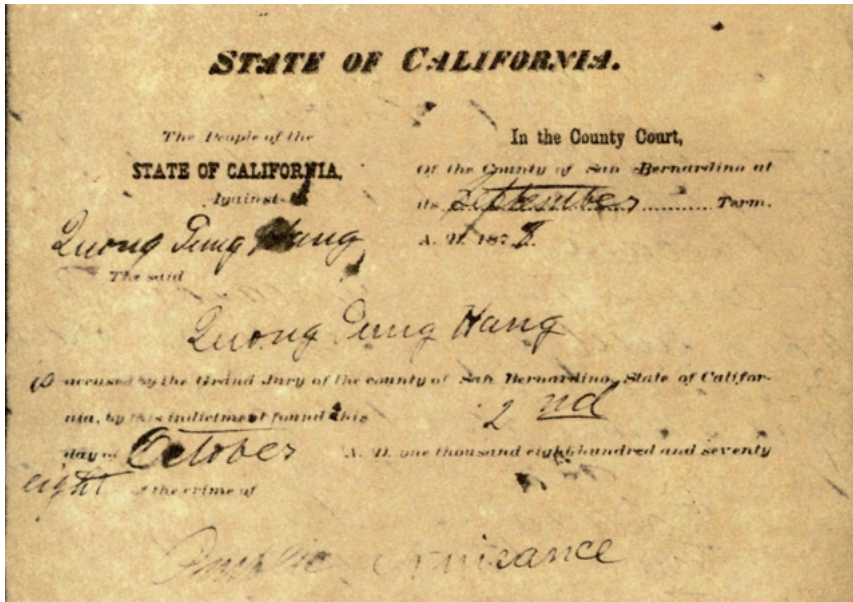 STATE OF CALIFORNIA.
The People of the
STATE OF CALIFORNIA,
Against
Quong Hang
The said
In the County Court,
Of the County of San Bernardino at
its September Term.
A. D. 1878.
Quong Hang
is accused by the Grand Jury of the county of San Bernardino, State of Califor-
nia, by this indictment found this 2nd
day of October A. D. one thousand eight hundred and seventy
eight of the crime of
Public nuisance